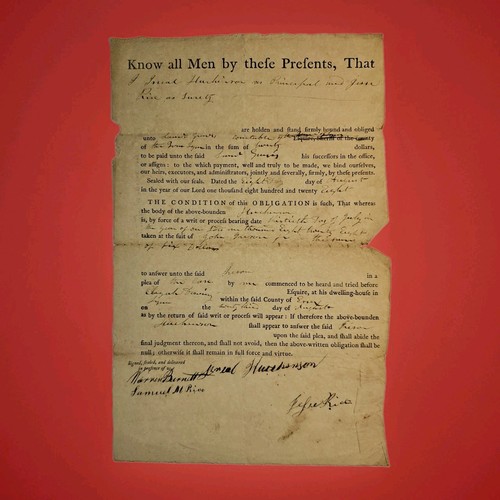 Know all Men by theſe Preſents, That
I Hutchinson as Principal and Jesse
Rice as Surety
are holden and ſtand firmly bound and obliged
unto Eſquire, ſheriff of the county
of in the ſum of Twenty dollars,
to be paid unto the ſaid his ſucceſſors in the office,
or aſſigns: to the which payment, well and truly to be made, we bind ourſelves,
our heirs, executors, and adminiſtrators, jointly and ſeverally, firmly, by theſe preſents.
Sealed with our ſeals. Dated the Eighth day of August
in the year of our Lord one thouſand eight hundred and twenty Eight
THE CONDITION of this OBLIGATION is ſuch, That whereas
the body of the above-bounden Hutchinson
is, by force of a writ or proceſs bearing date Day of July in
the year of our thousand Eight Twenty Eight
taken at the ſuit of John
of Six Dollars
to anſwer unto the ſaid in a
plea of the Case by commenced to be heard and tried before
Eſquire, at his dwelling-houſe in
Lynn within the ſaid County of Essex
on the day of August
as by the return of ſaid writ or proceſs will appear: If therefore the above-bounden
Hutchinson ſhall appear to anſwer the ſaid
upon the ſaid plea, and ſhall abide the
final judgment thereon, and ſhall not avoid, then the above-written obligation ſhall be
null; otherwiſe it ſhall remain in full force and virtue.
Signed, ſealed, and delivered
in preſence of
Warren Burnett Hutchinson
Samuel M Rice
Jesse Rice